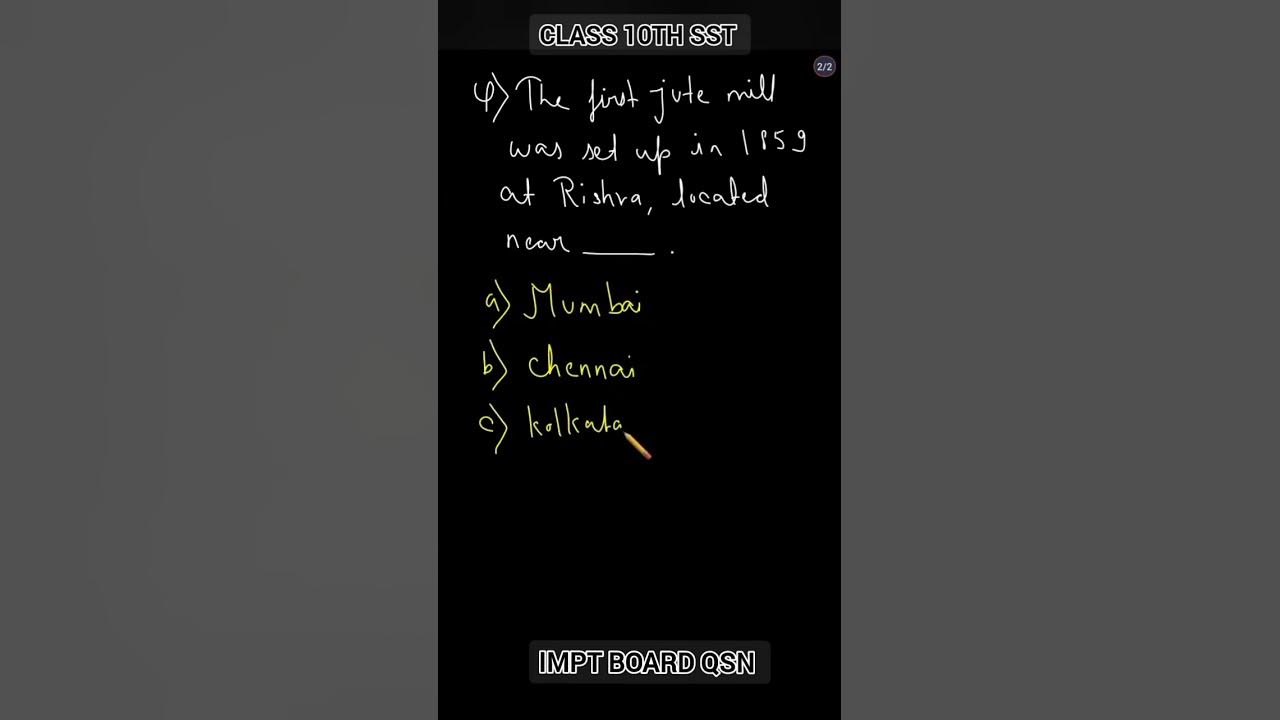 CLASS 10TH SST
2/2
Q) The first jute mill
was set up in 1859
at Rishra, located
near ____ .
a) Mumbai
b) Chennai
c) kolkata
IMPT BOARD QSN